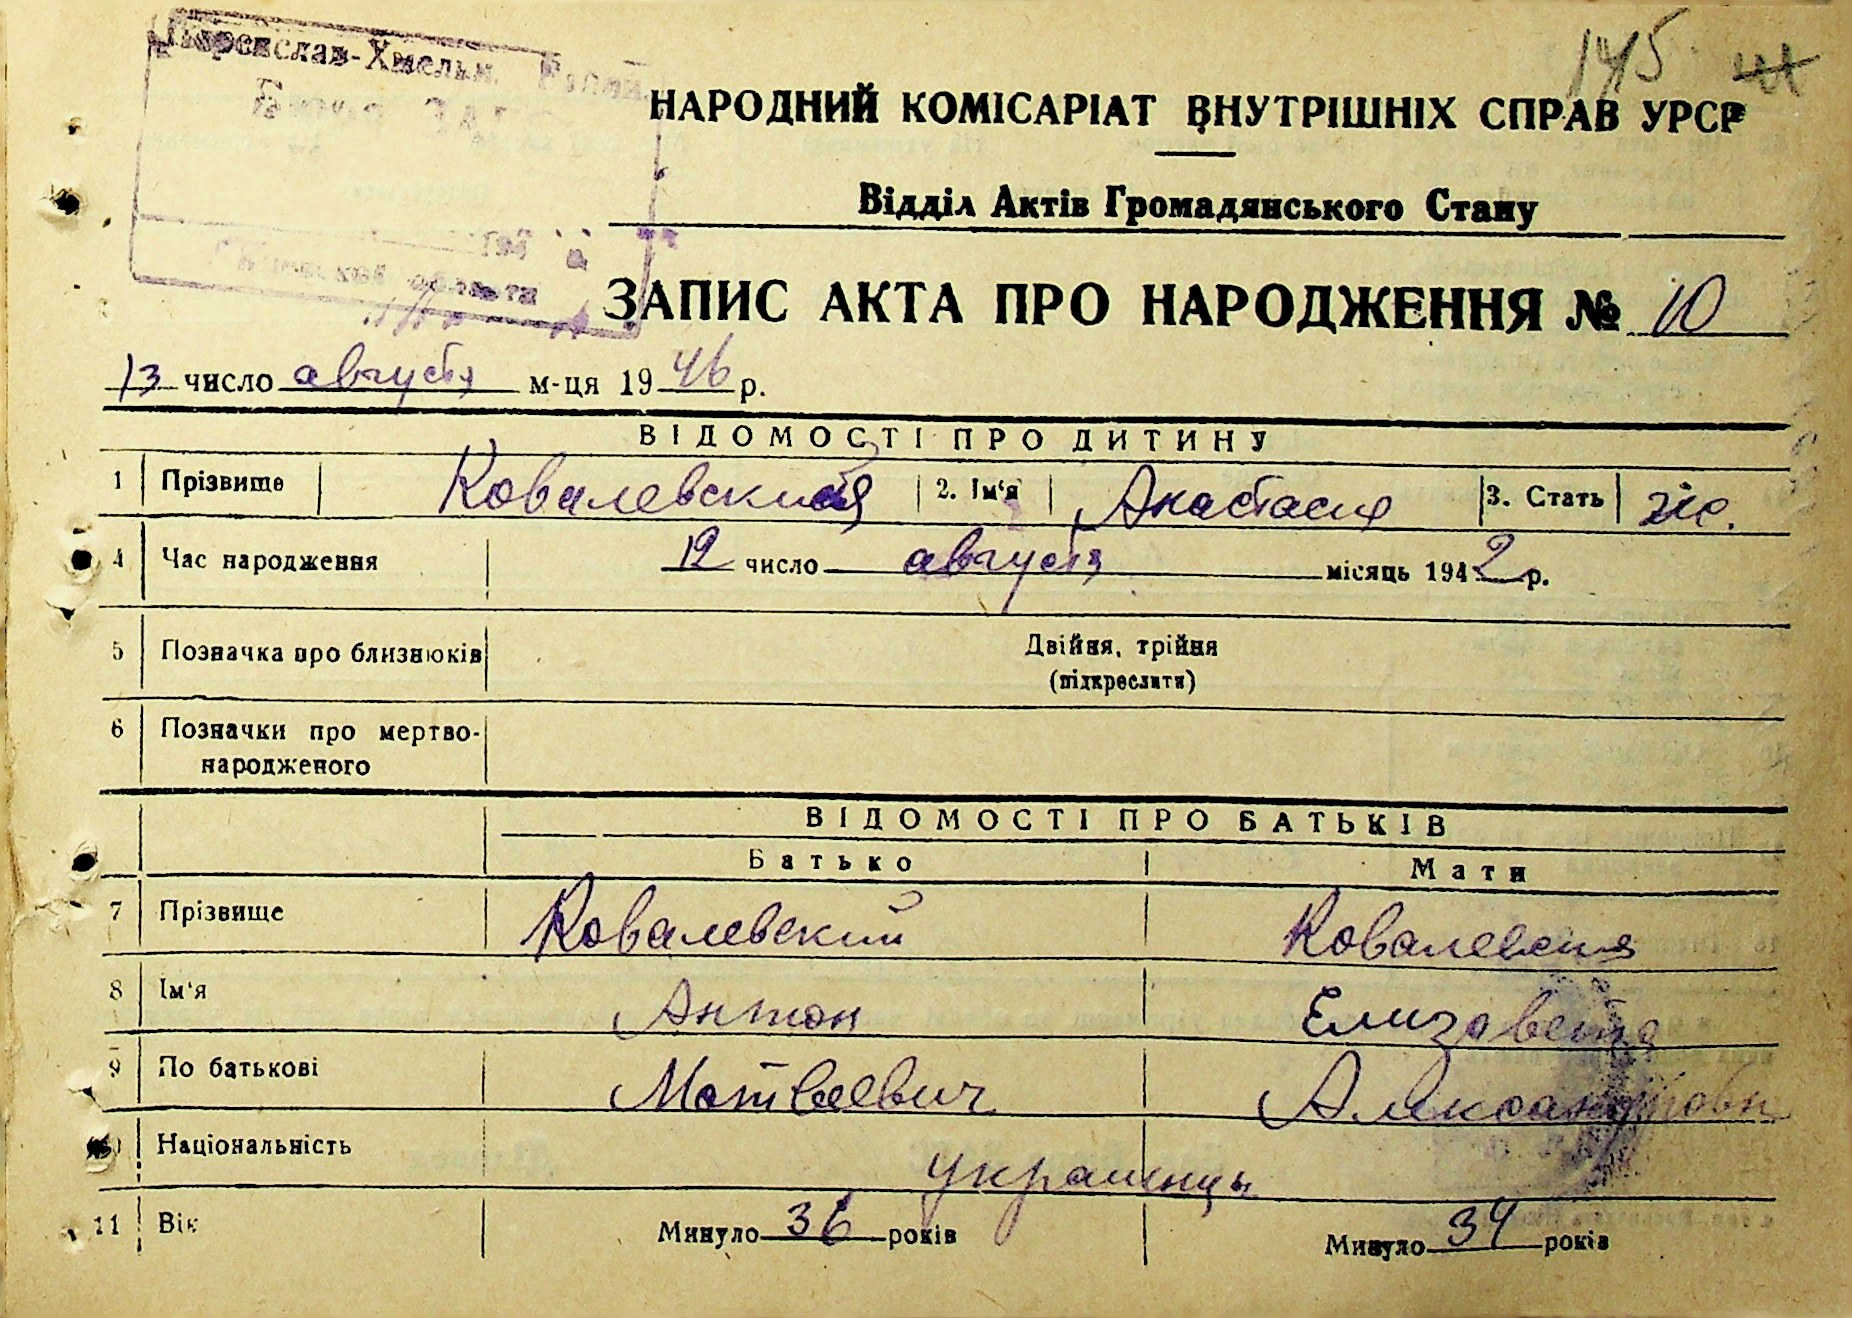 Переяслав-Хмельн.
области
145
НАРОДНИЙ КОМІСАРІАТ ВНУТРІШНІХ СПРАВ УРСР
Відділ Актів Громадянського Стану
ЗАПИС АКТА ПРО НАРОДЖЕННЯ № 10
13 число августа м-ця 1946 р.
ВІДОМОСТІ ПРО ДИТИНУ
1 Прізвище Ковалевская 2. Ім'я Анастасия 3. Стать ж.
4 Час народження 12 число августа місяць 1942 р.
5 Позначка про близнюків Двійня, трійня
(підкреслити)
6 Позначки про мертво-
народженого
ВІДОМОСТІ ПРО БАТЬКІВ
Батько Мати
7 Прізвище Ковалевский Ковалевская
8 Ім'я Антон Елизавета
9 По батькові Матвеевич Александровн
10 Національність украинцы
11 Вік Минуло 36 років Минуло 34 років